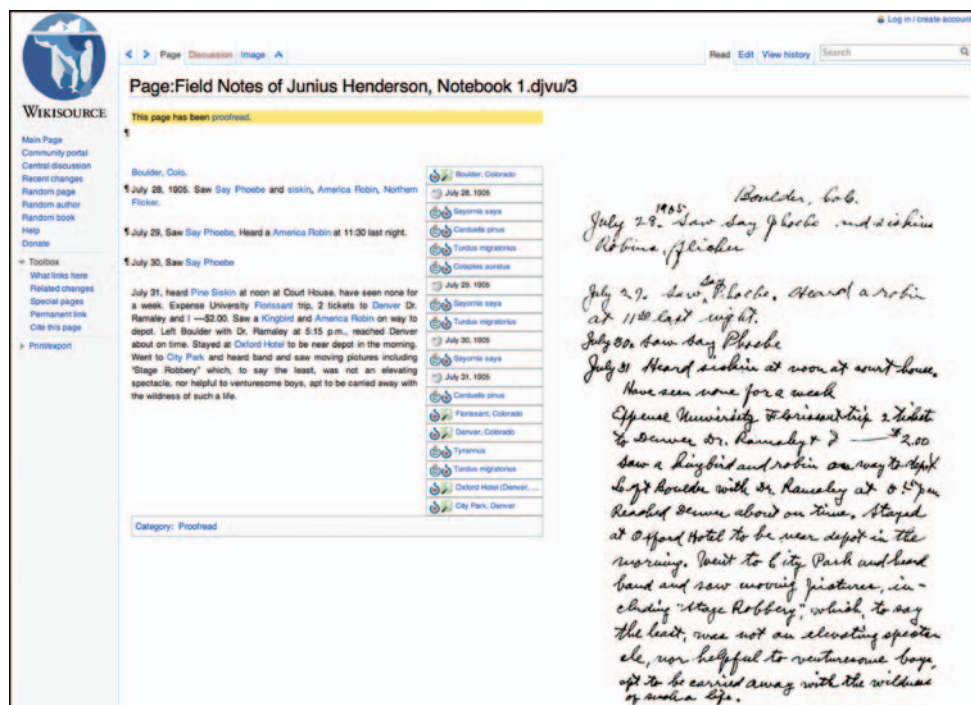 Log in / create account
Page Discussion Image
Read Edit View history Search
Page:Field Notes of Junius Henderson, Notebook 1.djvu/3
WIKISOURCE
Main Page
Community portal
Central discussion
Recent changes
Random page
Random author
Random book
Help
Donate
Toolbox
What links here
Related changes
Special pages
Permanent link
Cite this page
Print/export
This page has been proofread.
¶
Boulder, Colo.
¶ July 28, 1905. Saw Say Phoebe and siskin, America Robin, Northern
Flicker.
¶ July 29, Saw Say Phoebe, Heard a America Robin at 11:30 last night.
¶ July 30, Saw Say Phoebe
July 31, heard Pine Siskin at noon at Court House, have seen none for
a week. Expense University Florissant trip, 2 tickets to Denver Dr.
Ramaley and I —$2.00. Saw a Kingbird and America Robin on way to
depot. Left Boulder with Dr. Ramaley at 5:15 p.m., reached Denver
about on time. Stayed at Oxford Hotel to be near depot in the morning.
Went to City Park and heard band and saw moving pictures including
"Stage Robbery" which, to say the least, was not an elevating
spectacle, nor helpful to venturesome boys, apt to be carried away with
the wildness of such a life.
Boulder, Colorado
July 28, 1905
Sayornis saya
Carduelis pinus
Turdus migratorius
Colaptes auratus
July 29, 1905
Sayornis saya
Turdus migratorius
July 30, 1905
Sayornis saya
July 31, 1905
Carduelis pinus
Florissant, Colorado
Denver, Colorado
Tyrannus
Turdus migratorius
Oxford Hotel (Denver, ...
City Park, Denver
Category: Proofread
Boulder, Colo.
July 28. 1905. Saw Say Phoebe and siskin
Robins, flicker
July 29. Saw Say Phoebe. Heard a robin
at 11 30 last night.
July 30. Saw Say Phoebe
July 31 Heard siskin at noon at court house.
Have seen none for a week
Expense University Florissant trip 2 ticket
to Denver Dr. Ramaley & I — $2.00
Saw a kingbird and robin on way to depot
Left Boulder with Dr. Ramaley at 5:15 pm
Reached Denver about on time. Stayed
at Oxford Hotel to be near depot in the
morning. Went to City Park and heard
band and saw moving pictures, in-
cluding "Stage Robbery", which, to say
the least, was not an elevating specta-
cle, nor helpful to venturesome boys,
apt to be carried away with the wildness
of such a life.